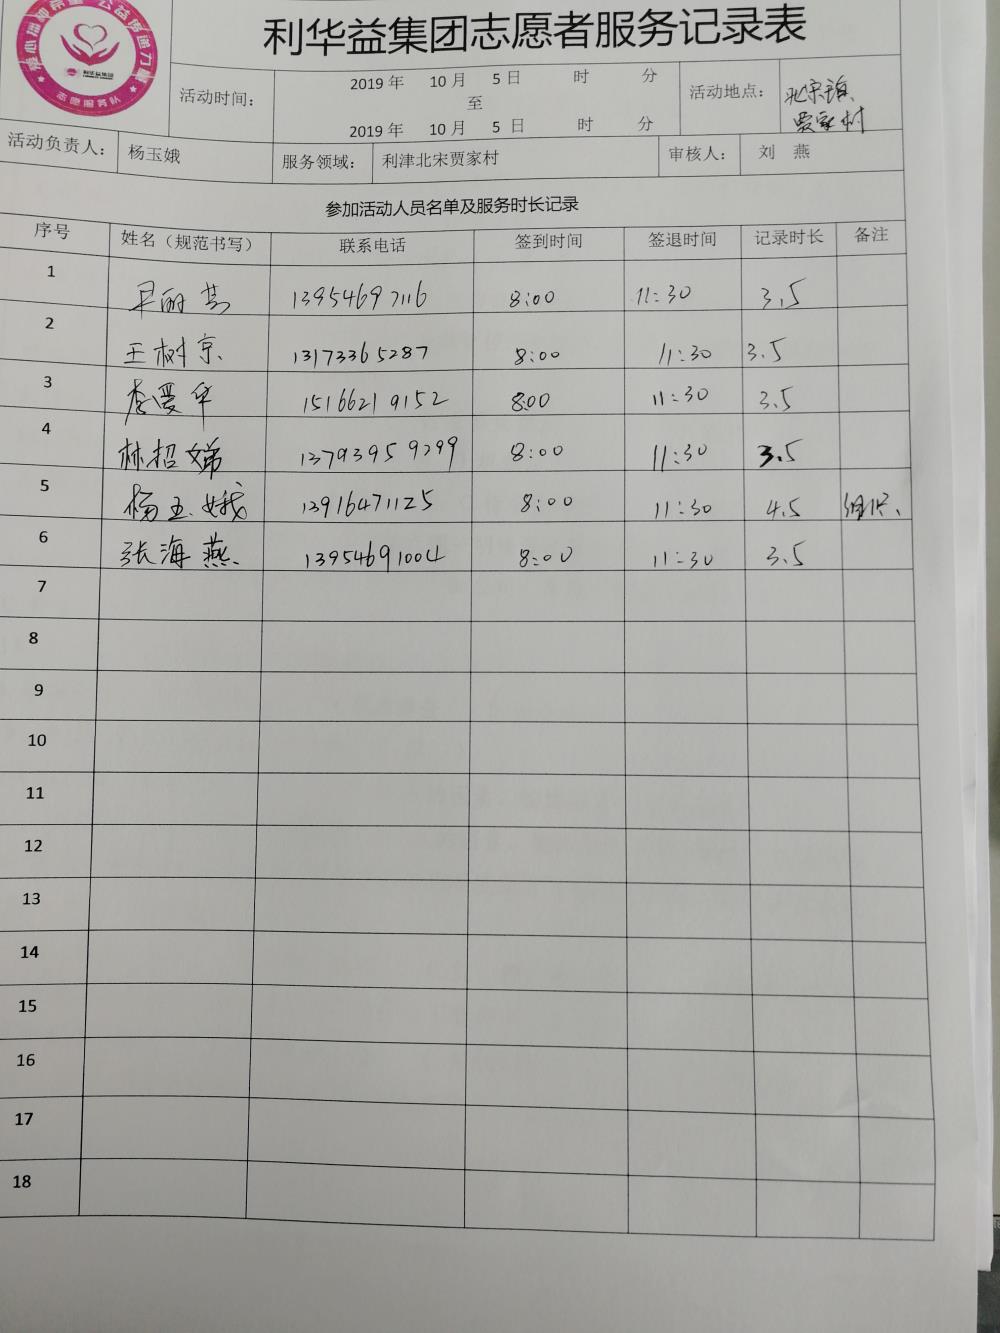 利华益集团志愿者服务记录表
利华益集团
志愿服务队
活动时间： 2019 年 10 月 5 日 时 分
至
2019 年 10 月 5 日 时 分
活动地点： 北宋镇
贾家村
活动负责人： 杨玉娥 服务领域： 利津北宋贾家村 审核人： 刘 燕
参加活动人员名单及服务时长记录
序号 姓名（规范书写） 联系电话 签到时间 签退时间 记录时长 备注
1 13954697116 8:00 11:30 3.5
2 王树京 13173365287 8:00 11:30 3.5
3 李爱华 15166219152 8:00 11:30 3.5
4 林招娣 13793959299 8:00 11:30 3.5
5 杨玉娥 13916471125 8:00 11:30 4.5 组织
6 张海燕 13954691004 8:00 11:30 3.5
7
8
9
10
11
12
13
14
15
16
17
18